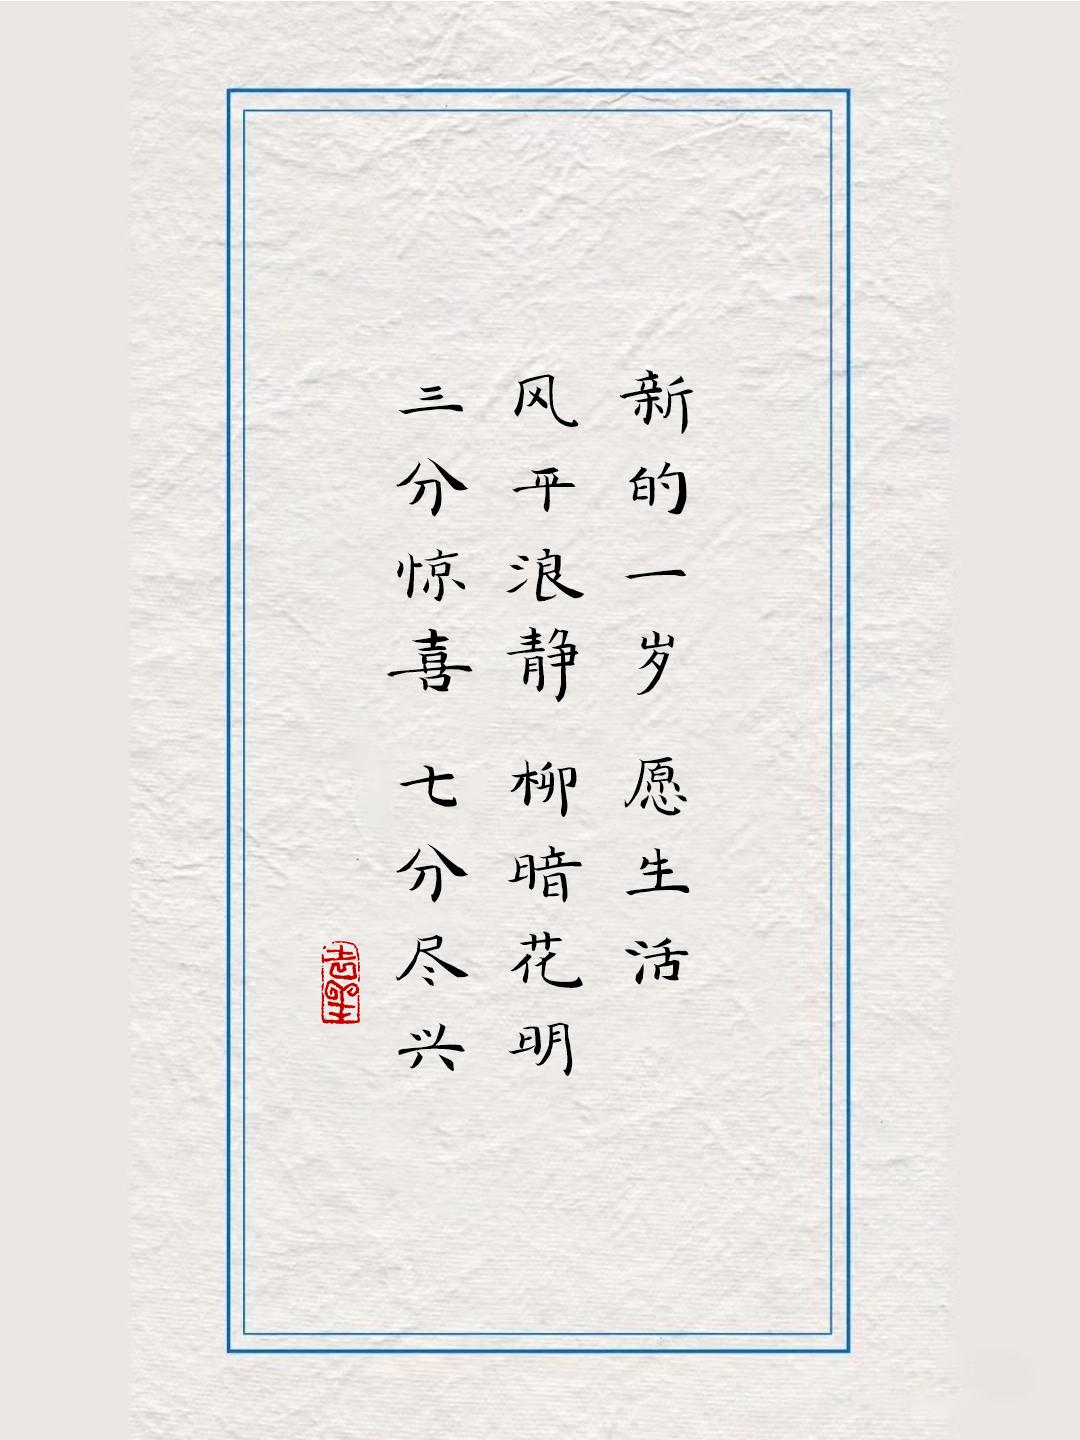 新的一岁 愿生活
风平浪静 柳暗花明
三分惊喜 七分尽兴